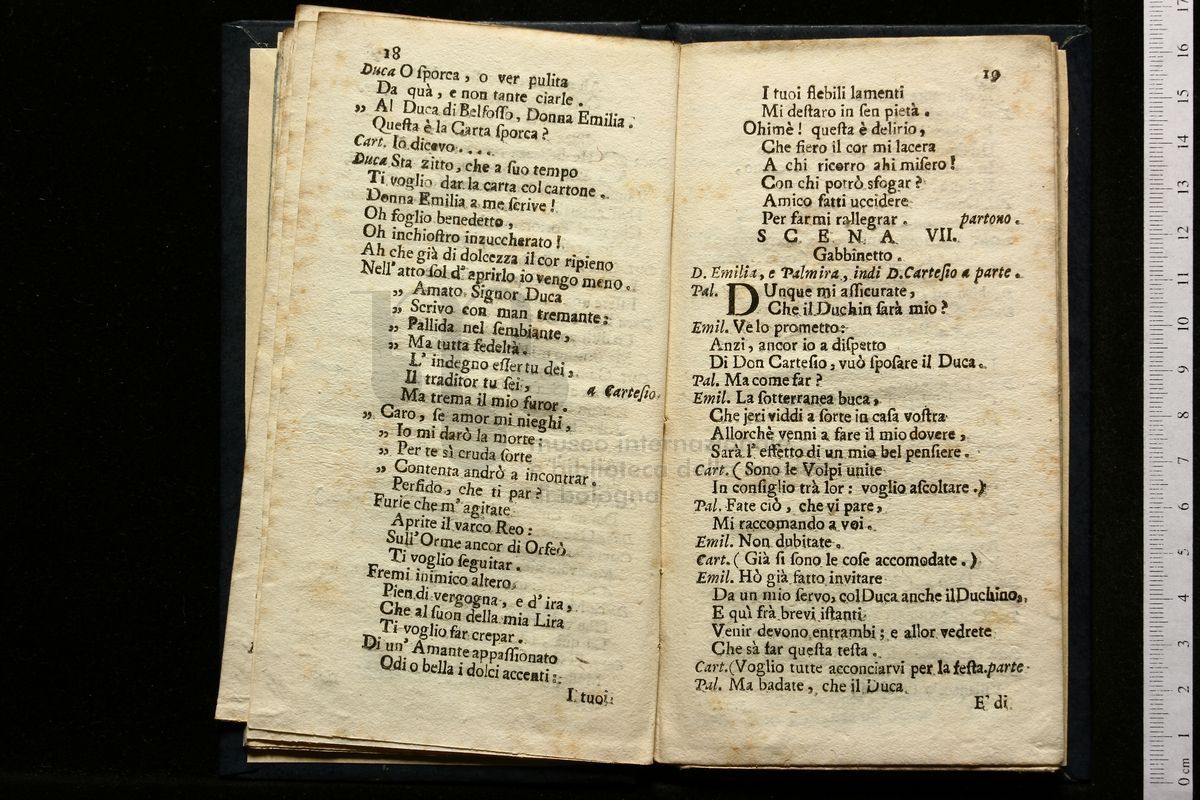 18
Duca O ſporca, o ver pulita
Da quà, e non tante ciarle.
„ Al Duca di Belfoſſo, Donna Emilia.
Queſta è la Carta ſporca?
Cart. Io dicevo....
Duca Sta zitto, che a ſuo tempo
Ti voglio dar la carta col cartone.
Donna Emilia a me ſcrive!
Oh foglio benedetto,
Oh inchioſtro inzuccherato!
Ah che già di dolcezza il cor ripieno
Nell' atto ſol d' aprirlo io vengo meno.
„ Amato Signor Duca
„ Scrivo con man tremante:
„ Pallida nel ſembiante,
„ Ma tutta fedeltà.
L' indegno eſſer tu dei,
Il traditor tu ſei,
Ma trema il mio furor. a Carteſio.
„ Caro, ſe amor mi nieghi,
„ Io mi darò la morte:
„ Per te sì cruda ſorte
„ Contenta andrò a incontrar.
Perfido, che ti par?
Furie che m' agitate
Aprite il varco Reo:
Sull' Orme ancor di Orfeò
Ti voglio ſeguitar.
Fremi inimico altero,
Pien di vergogna, e d' ira,
Che al ſuon della mia Lira
Ti voglio far crepar.
Di un' Amante appaſſionato
Odi o bella i dolci accenti:
I tuoi
19
I tuoi flebili lamenti
Mi deſtaro in ſen pietà.
Ohimè! queſta è delirio,
Che fiero il cor mi lacera
A chi ricorro ahi miſero!
Con chi potrò sfogar?
Amico fatti uccidere
Per farmi rallegrar. partono.
SCENA VII.
Gabbinetto.
D. Emilia, e Palmira, indi D. Carteſio a parte.
Pal. DUnque mi aſſicurate,
Che il Duchin ſarà mio?
Emil. Ve lo prometto:
Anzi, ancor io a diſpetto
Di Don Carteſio, vuò ſpoſare il Duca.
Pal. Ma come far?
Emil. La ſotterranea buca,
Che jeri viddi a ſorte in caſa voſtra
Allorchè venni a fare il mio dovere,
Sarà l' effetto di un mio bel penſiere.
Cart. (Sono le Volpi unite
In conſiglio trà lor: voglio aſcoltare.)
Pal. Fate ciò, che vi pare,
Mi raccomando a voi.
Emil. Non dubitate.
Cart. (Già ſi ſono le coſe accomodate.)
Emil. Hò già fatto invitare
Da un mio ſervo, col Duca anche il Duchino,
E quì frà brevi iſtanti
Venir devono entrambi; e allor vedrete
Che sà far queſta teſta.
Cart. (Voglio tutte acconciarvi per la feſta. parte
Pal. Ma badate, che il Duca
E' di
museo internazionale
e biblioteca della musica
di bologna
0 cm 1 2 3 4 5 6 7 8 9 10 11 12 13 14 15 16 17